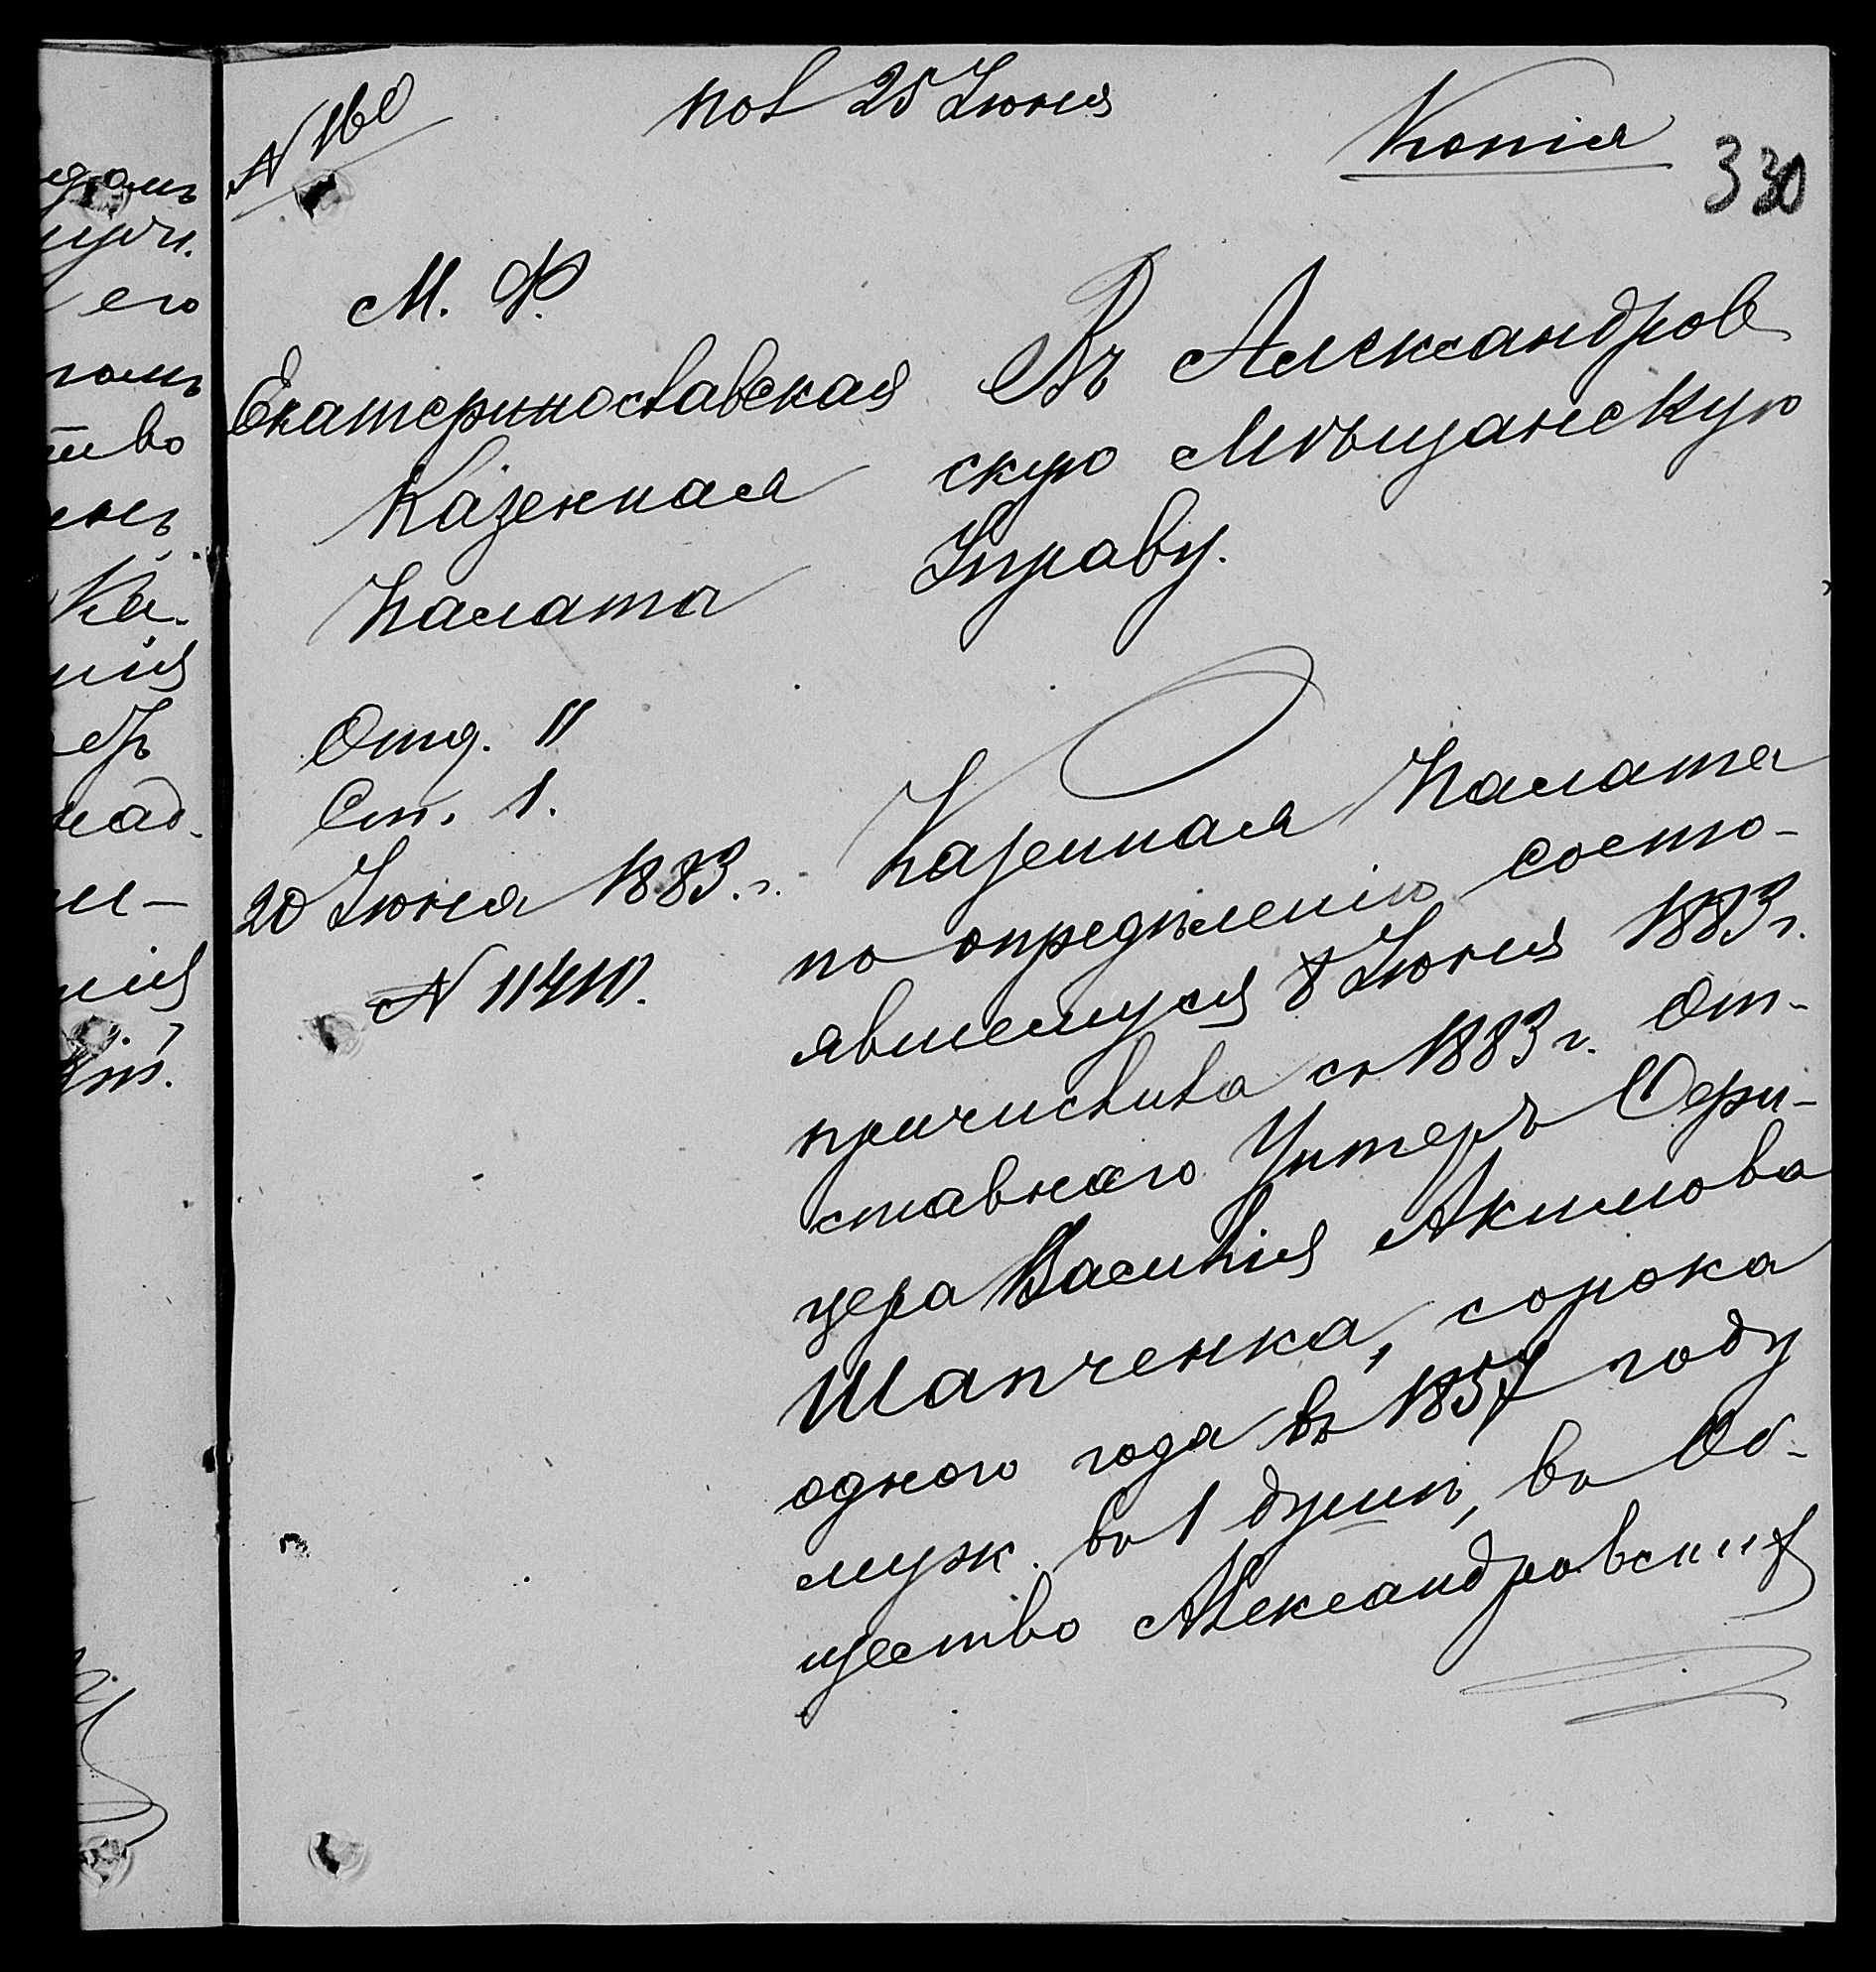 № 160
пол 25 Іюня
Копія
330
М. Ф.
Екатеринославская
Казенная
Палата
Отд. II
Ст. 1.
20 Іюня 1883 г.
№ 11410.
Въ Александров
скую Мѣщанскую
Управу.
Казенная Палата
по опредѣленію состо-
явшемуся 8 Іюня 1883 г.
причислила съ 1883 г. От-
ставного Унтеръ Офи-
цера Василія Акимова
Шапченка, сорока
одного года въ 1857 году
муж. въ 1 душѣ, въ Об-
щество Александровских